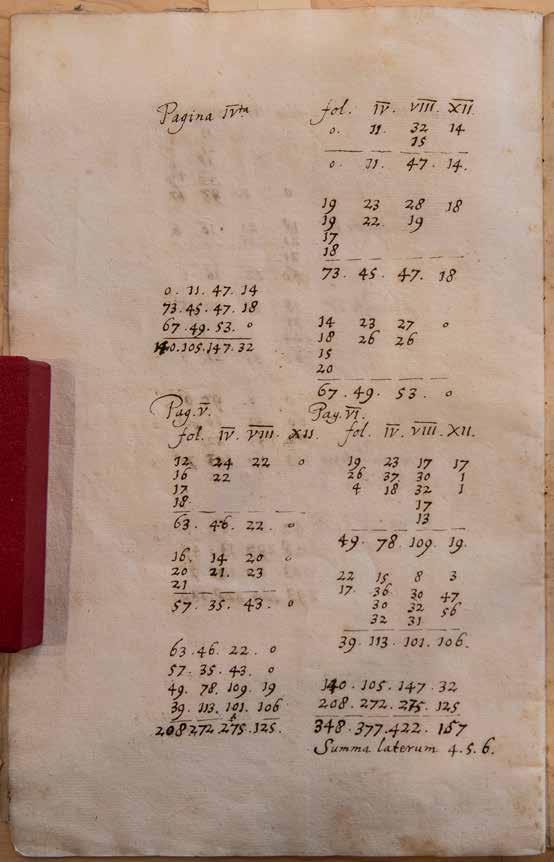 Pagina IVta
fol. IV. VIII. XII.
0. 11. 32 14
15
0. 11. 47. 14.
19 23 28 18
19 22 19
17
18
73. 45. 47. 18
0. 11. 47. 14
73. 45. 47. 18
67. 49. 53. 0
140. 105. 147. 32
14 23 27 0
18 26 26
15
20
67. 49. 53. 0
Pag. V.
fol. IV. VIII. XII.
12 24 22 0
16 22
17
18
63. 46. 22. 0
16. 14 20 0
20 21. 23
21
57. 35. 43. 0
63. 46. 22. 0
57. 35. 43. 0
49. 78. 109. 19
39. 113. 101. 106
208 272. 275. 125.
Pag. VI.
fol. IV. VIII. XII.
19 23 17 17
26 37 30 1
4 18 32 1
17
13
49. 78. 109. 19.
22 15 8 3
17 36 30 47
30 32 56
32 31
39. 113. 101. 106.
140. 105. 147. 32
208. 272. 275. 125
348. 377. 422. 157
Summa laterum 4. 5. 6.